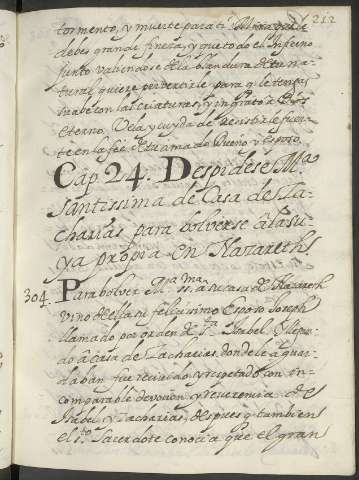 212
tormento, y muerte para ti. Mira que le
debes grande fineza, y que todo el Infierno
junto valiendose de la blandura de tu na-
tural quiere pervertirle para q̃ le tengas
suabe con las criaturas, y ingrato a Dios
eterno. Vela y cuyda de resistirle fuer-
te en la feè de tu amado Dueño y Esposo.
Cap 24. Despidese M.ª
Santissima de Casa de Za-
charias para bolverse â la su-
ya propria en Nazareth
304. Para bolver M.ª SS.ma a su casa de Nazareth
vino de ella su felicissimo Esposo Joseph
llamado por orden de S.ta Isabel. Y llegan-
do a casa de Zacharias donde le aguar-
daban fue recivido y respetado con in-
comparable devocion, y reverencia de
Isabel, y Zacharias, despues q̃ tambien
el S.to Sacerdote conocia que el gran